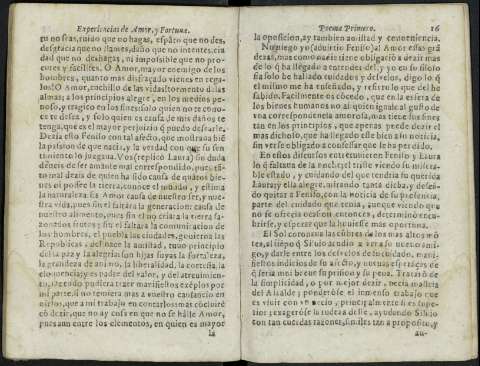 Experiencias de Amor, y Fortuna.
en no seas, ruido que no hagas, espãto que no des,
desgracia que no llames, daño que no intentes, cia
dad que no deshagas, ni impossible que no pro-
cures y facilites. O Amor, mayor enemigo de los
hombres, quanto mas disfraçado vienes en rega-
los! O Amor, cuchillo de las vidas! tormento de las
almas; a los principios alegre, en los medios pe-
noso, y tragico en los fines: solo quien te cono-
ce te dessea, y solo quien es causa de mis daños te
tenga, que es el mayor perjuizio q̃ puedo dessearle.
Dezia esto Fenisa con tal afecto, que mostraua biẽ
la passion de que nacia, y la verdad con que su sen
timiento lo juzgaua. Vos (replicò Laura) sin duda
deueis de ser amante mal correspondido, pues tã-
to mal dezis de quien ha sido causa de quantos bie-
nes possee la tierra, conoce el mundo, y estima
la naturaleza. Es Amor causa de nuestro ser, y nues-
tra vida, pues sin el faltàra la generacion: causa de
nuestro alimento, pues sin el no criàra la tierra sa-
zonados frutos; sin el faltàra la comunicacion de
los hombres, el puebla las ciudades, gouierna las
Republicas; del nace la amistad, tuuo principio
della paz y la alegria: son hijas suyas la fortaleza,
la grandeza de animo, la liberalidad, la cortesia, la
eloquencia; y es padre del valor, y del atreuimien-
to,
mi parte, si no temiera mas a vuestro cansancio en
oirlos, que a mi trabajo en contarlos: mas cõcluirè
cõ dezir, que no ay cosa en que no se halle Amor,
pues aun entre los elementos, en quien es mayor
la
Poema Primero.
16
la oposicion, ay tambien amistad y conueniencia.
No niego yo (aduirtiò Fenisa) al Amor essas grã
dezas, mas como naciò tiene obligacion a dezir mas
de lo q̃ ha llegado a entender del, y yo en su silecio
sia solo he hallado cuidados y desvelos, digo lo q̃
el mismo me ha enseñado, y refiero lo que del he
sabido. Facilmente os cõcedo, que en la esfera de
los bienes humanos no ai quien iguale al gusto de
vna correspondencia amorosa, mas tiene sus fines
tan en los principios, que apenas puede dezir el
mas dichoso, que ha llegado este bien a su noticia,
sin verse obligado a confessar que le ha perdido.
En estos discursos entretuuieron Fenisa y Laura
lo q̃ faltaua de la noche; el triste viendo su misera-
ble estado, y cuidando del que tendria su querida
Laura; y ella alegre, mirando tanta dicha, y dessean-
do quitar a Fenisa, con la noticia de su presencia,
parte del cuidado que tenia, aunque viendo que
no se ofrecia ocasion entonces, determinò encu-
brirse, y esperar que la huuiesse mas oportuna.
El Sol coronaua las cũbres de los mas altos mõ-
tes, al tiẽpo q̃ Siluio acudio a ver a su nueuo ami-
go, y darle entre los desvelos de su cuidado, mani-
fiestos indicios de su afecto, y nueuas esperãças de
q̃ seria mui breue su prision y su pena. Tratarõ de
la simplicidad, o por mejor dezir, necia malicia
del Alcaide; ponderòse el inmenso trabajo que
es viuir con vn necio, principalmente si es supe-
rior; exageròse la rudeza deste, ayudando Siluio
con tan cuerdas razones, similes tan a proposito, y
au-